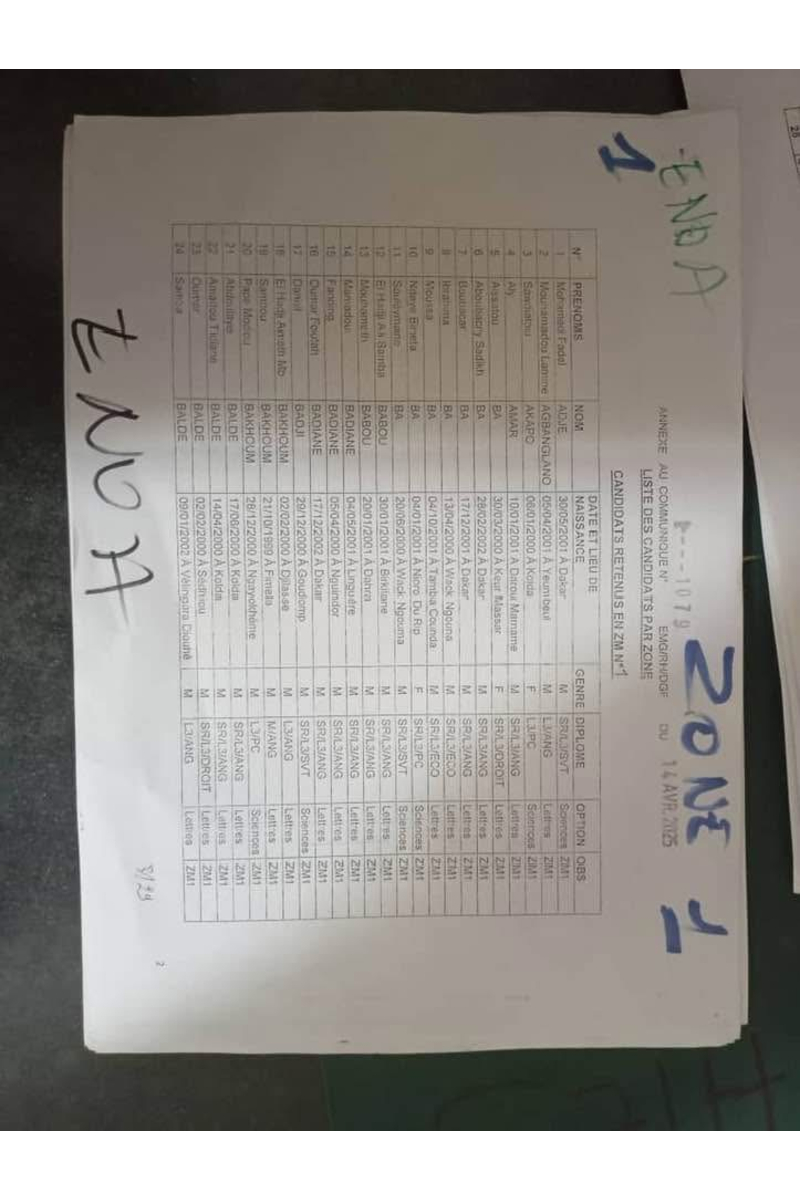 ENOA
1
ZONE 1
ANNEXE AU COMMUNIQUE N° 1079 EMG/RH/DGF DU 14 AVR. 2025
LISTE DES CANDIDATS PAR ZONE
CANDIDATS RETENUS EN ZM N°1
N° PRENOMS NOM DATE ET LIEU DE NAISSANCE GENRE DIPLOME OPTION OBS
1 Mohamed Fadel ADJE 30/05/2001 À Dakar M SR/L3/SVT Sciences ZM1
2 Mouhamadou Lamine AGBANGLANO 05/04/2001 À Yeumbeul M L3/ANG Lettres ZM1
3 AKAPO 06/01/2000 À Kolda F L3/PC Sciences ZM1
4 Aly AMAR 10/01/2001 À Darou Marnane M SR/L3/ANG Lettres ZM1
5 Aissatou BA 30/03/2000 À Keur Massar F SR/L3/DROIT Lettres ZM1
6 Aboubacry Sadikh BA 28/02/2002 À Dakar M SR/L3/ANG Lettres ZM1
7 Boubacar BA 17/12/2001 À Dakar M SR/L3/ANG Lettres ZM1
8 Ibrahima BA 13/04/2000 À Wack Ngouna M SR/L3/ECO Lettres ZM1
9 Moussa BA 04/10/2001 À Tamba Counda M SR/L3/ECO Lettres ZM1
10 Ndèye Bineta BA 04/01/2001 À Nioro Du Rip F SR/L3/PC Sciences ZM1
11 Souleymane BA 20/06/2000 À Wack Ngouna M SR/L3/SVT Sciences ZM1
12 El Hadji Ali Samba BABOU 30/01/2001 À Birkilane M SR/L3/ANG Lettres ZM1
13 Mouhameth BABOU 20/01/2001 À Dahra M SR/L3/ANG Lettres ZM1
14 Mamadou BADIANE 04/05/2001 À Linguère M SR/L3/ANG Lettres ZM1
15 Fanding BADIANE 05/04/2000 À Nguindor M SR/L3/ANG Lettres ZM1
16 Oumar Foutah BADIANE 17/12/2002 À Dakar M SR/L3/ANG Lettres ZM1
17 Daniel BADJI 29/12/2000 À Goudomp M SR/L3/SVT Sciences ZM1
18 El Hadji Ameth Mb BAKHOUM 02/02/2000 À Djilasse M L3/ANG Lettres ZM1
19 Sambou BAKHOUM 21/10/1999 À Fimela M M/ANG Lettres ZM1
20 Pape Modou BAKHOUM 26/12/2000 À Ngayokhème M L3/PC Sciences ZM1
21 Abdoulaye BALDE 17/06/2000 À Kolda M SR/L3/ANG Lettres ZM1
22 Amadou Tidiane BALDE 14/04/2000 À Kolda M SR/L3/ANG Lettres ZM1
23 Oumar BALDE 02/02/2000 À Sédhiou M SR/L3/DROIT Lettres ZM1
24 Samba BALDE 09/01/2002 À Vélingara Diouhé M L3/ANG Lettres ZM1
ENOA
2